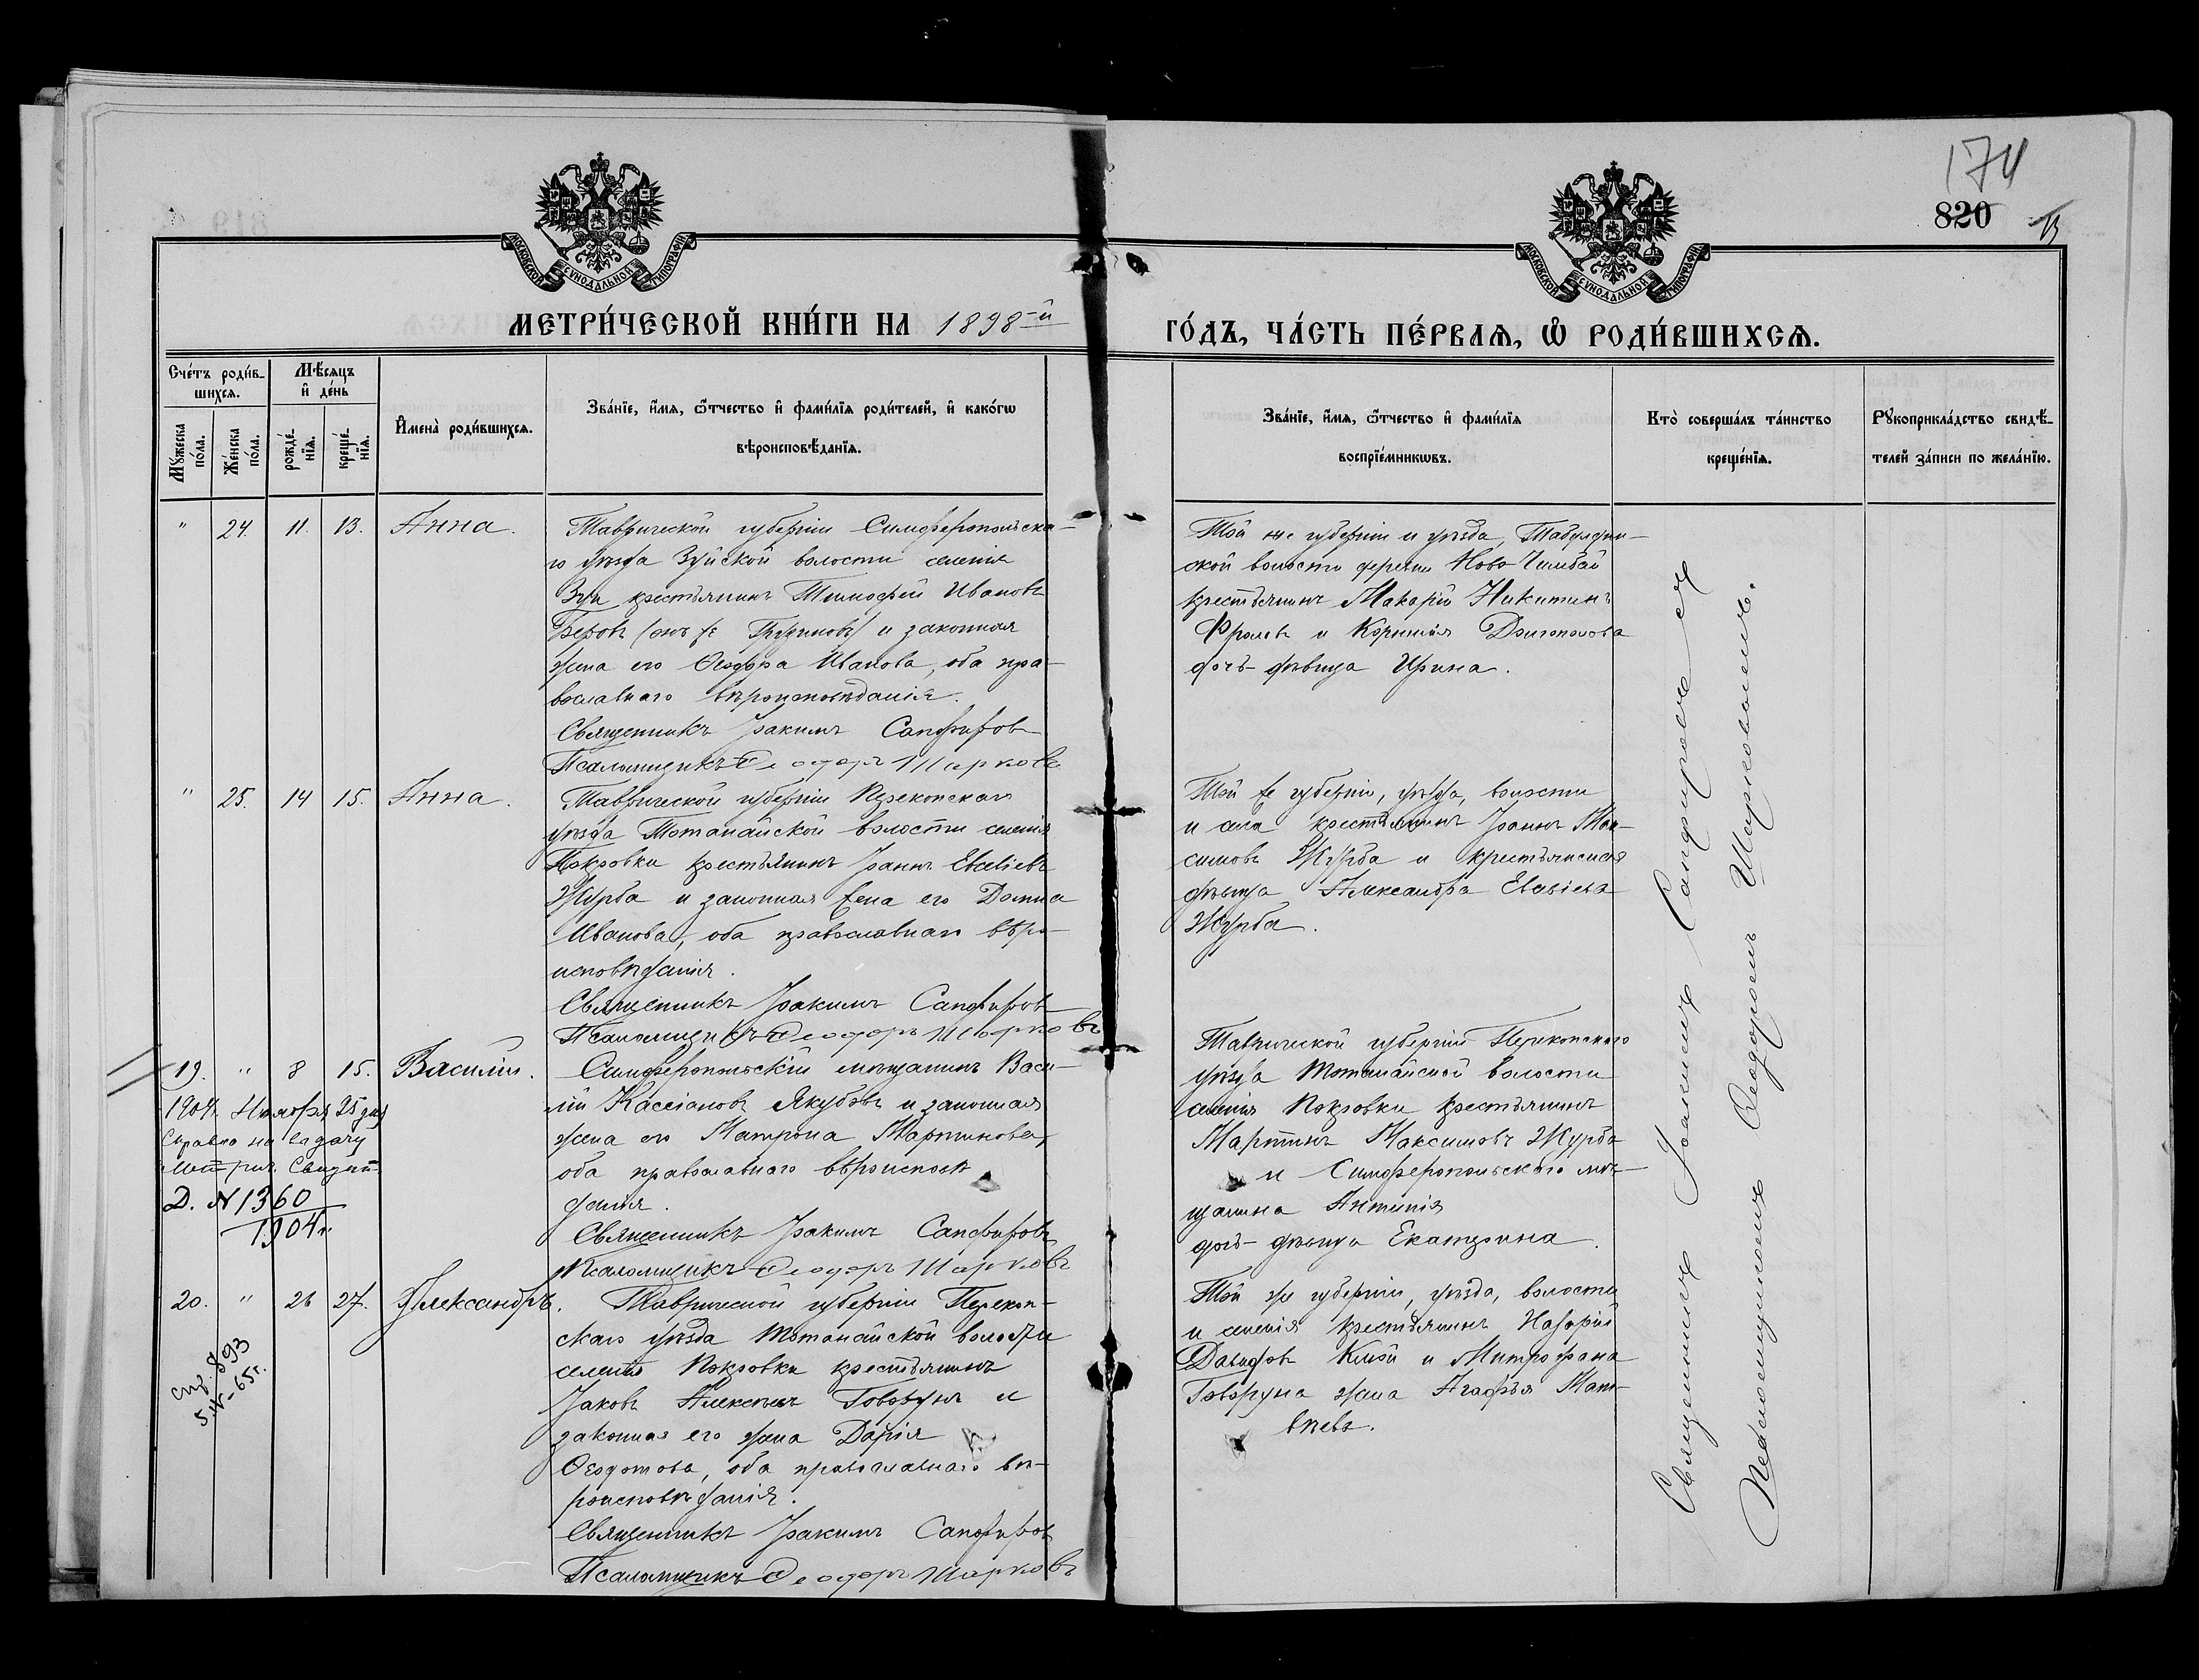 174
820
МОСКОВСКОЙ СѴНОДАЛЬНОЙ ТИПОГРАФІИ
МОСКОВСКОЙ СѴНОДАЛЬНОЙ ТИПОГРАФІИ
МЕТРИ́ЧЕСКОЙ КНИ́ГИ НА 1898-й
ГО́ДЪ, ЧА́СТЬ ПЕ́РВАѦ, Ѡ҆ РОДИ́ВШИХСѦ.
Сче́тъ роди́в-
шихсѧ.
Мꙋ́жеска
по́ла.
Же́нска
по́ла.
Мѣ́сѧцъ
и҆ де́нь
рожде́-
нїѧ.
креще́-
нїѧ.
И҆мена̀ роди́вшихсѧ.
Зва́нїе, и҆́мѧ, ѻ҆́тчество и҆ фами́лїѧ роди́телей, и҆ како́гѡ
вѣроисповѣ́данїѧ.
Зва́нїе, и҆́мѧ, ѻ҆́тчество и҆ фами́лїѧ
воспрїе́мникѡвъ.
Кто̀ соверша́лъ та́инство
креще́нїѧ.
Рꙋкоприкла́дство свидѣ́-
телей за́писи по жела́нїю.
" 24. 11. 13. Анна.
Таврической губерніи Симферопольска-
го уѣзда Зуйской волости селенія
Зуи крестьянинъ Тимофей Ивановъ
и законная
жена его Ѳеодора Иванова, оба пра-
вославнаго вѣроисповѣданія.
Священникъ Іоакимъ Сапфировъ
Псаломщикъ Ѳеодоръ Шарковъ
Той же губерніи и уѣзда, Табулдин-
ской волости деревни Ново Чембай
крестьянинъ Макарій Никитинъ
Фролов и Корнилія Долгополова
дочь-дѣвица Ирина.
" 25. 14 15. Анна.
Таврической губерніи Перекопскаго
уѣзда Тотанайской волости селенія
Покровки крестьянинъ Іоаннъ Евсевіевъ
Журба и законная жена его Домна
Иванова, оба православнаго вѣро-
исповѣданія.
Священникъ Іоакимъ Сапфировъ
Псаломщикъ Ѳеодоръ Шарковъ
Той же губерніи, уѣзда, волости
и села крестьянинъ Іоаннъ Мак-
симовъ Журба и крестьянская
дѣвица Александра Евсевіева
Журба.
19. " 8 15. Василій.
1904 Ноября 25 дня
Справка на выдачу
метрич. Свидѣт.
Д. № 1360
1904 г.
Симферопольскій мѣщанинъ Васи-
лій Кассіановъ Якубовъ и законная
жена его Матрона Мартинова,
оба православнаго вѣроисповѣ
данія.
Священникъ Іоакимъ Сапфировъ
Псаломщикъ Ѳеодоръ Шарковъ
Таврической губерніи Перекопскаго
уѣзда Тотанайской волости
селенія Покровки крестьянинъ
Мартинъ Максимовъ Журба
и Симферопольскаго мѣ-
щанина Антипія
дочь-дѣвица Екатерина.
20. " 26 27. Александръ.
спр. 893
5.IV-65г.
Таврической губерніи Перекоп-
скаго уѣзда Тотанайской волости
селенія Покровки крестьянинъ
Іаковъ Алексѣевъ Говорунъ и
законная его жена Дарія
Ѳеодотова, оба православнаго вѣ-
роисповѣданія.
Священникъ Іоакимъ Сапфировъ
Псаломщикъ Ѳеодоръ Шарковъ
Той же губерніи, уѣзда, волости
и селенія крестьянинъ Назарій
Давидовъ и Митрофана
Говоруна жена Агафья Мат-
вѣева.
Священникъ Іоакимъ Сапфировъ съ
Псаломщикомъ Ѳеодоромъ Шарковымъ.